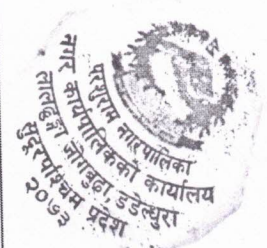 परशुराम नगरपालिका
नगर कार्यपालिकको कार्यालय
जोगबुढा, डडेल्धुरा
सुदूरपश्चिम प्रदेश
२०७३